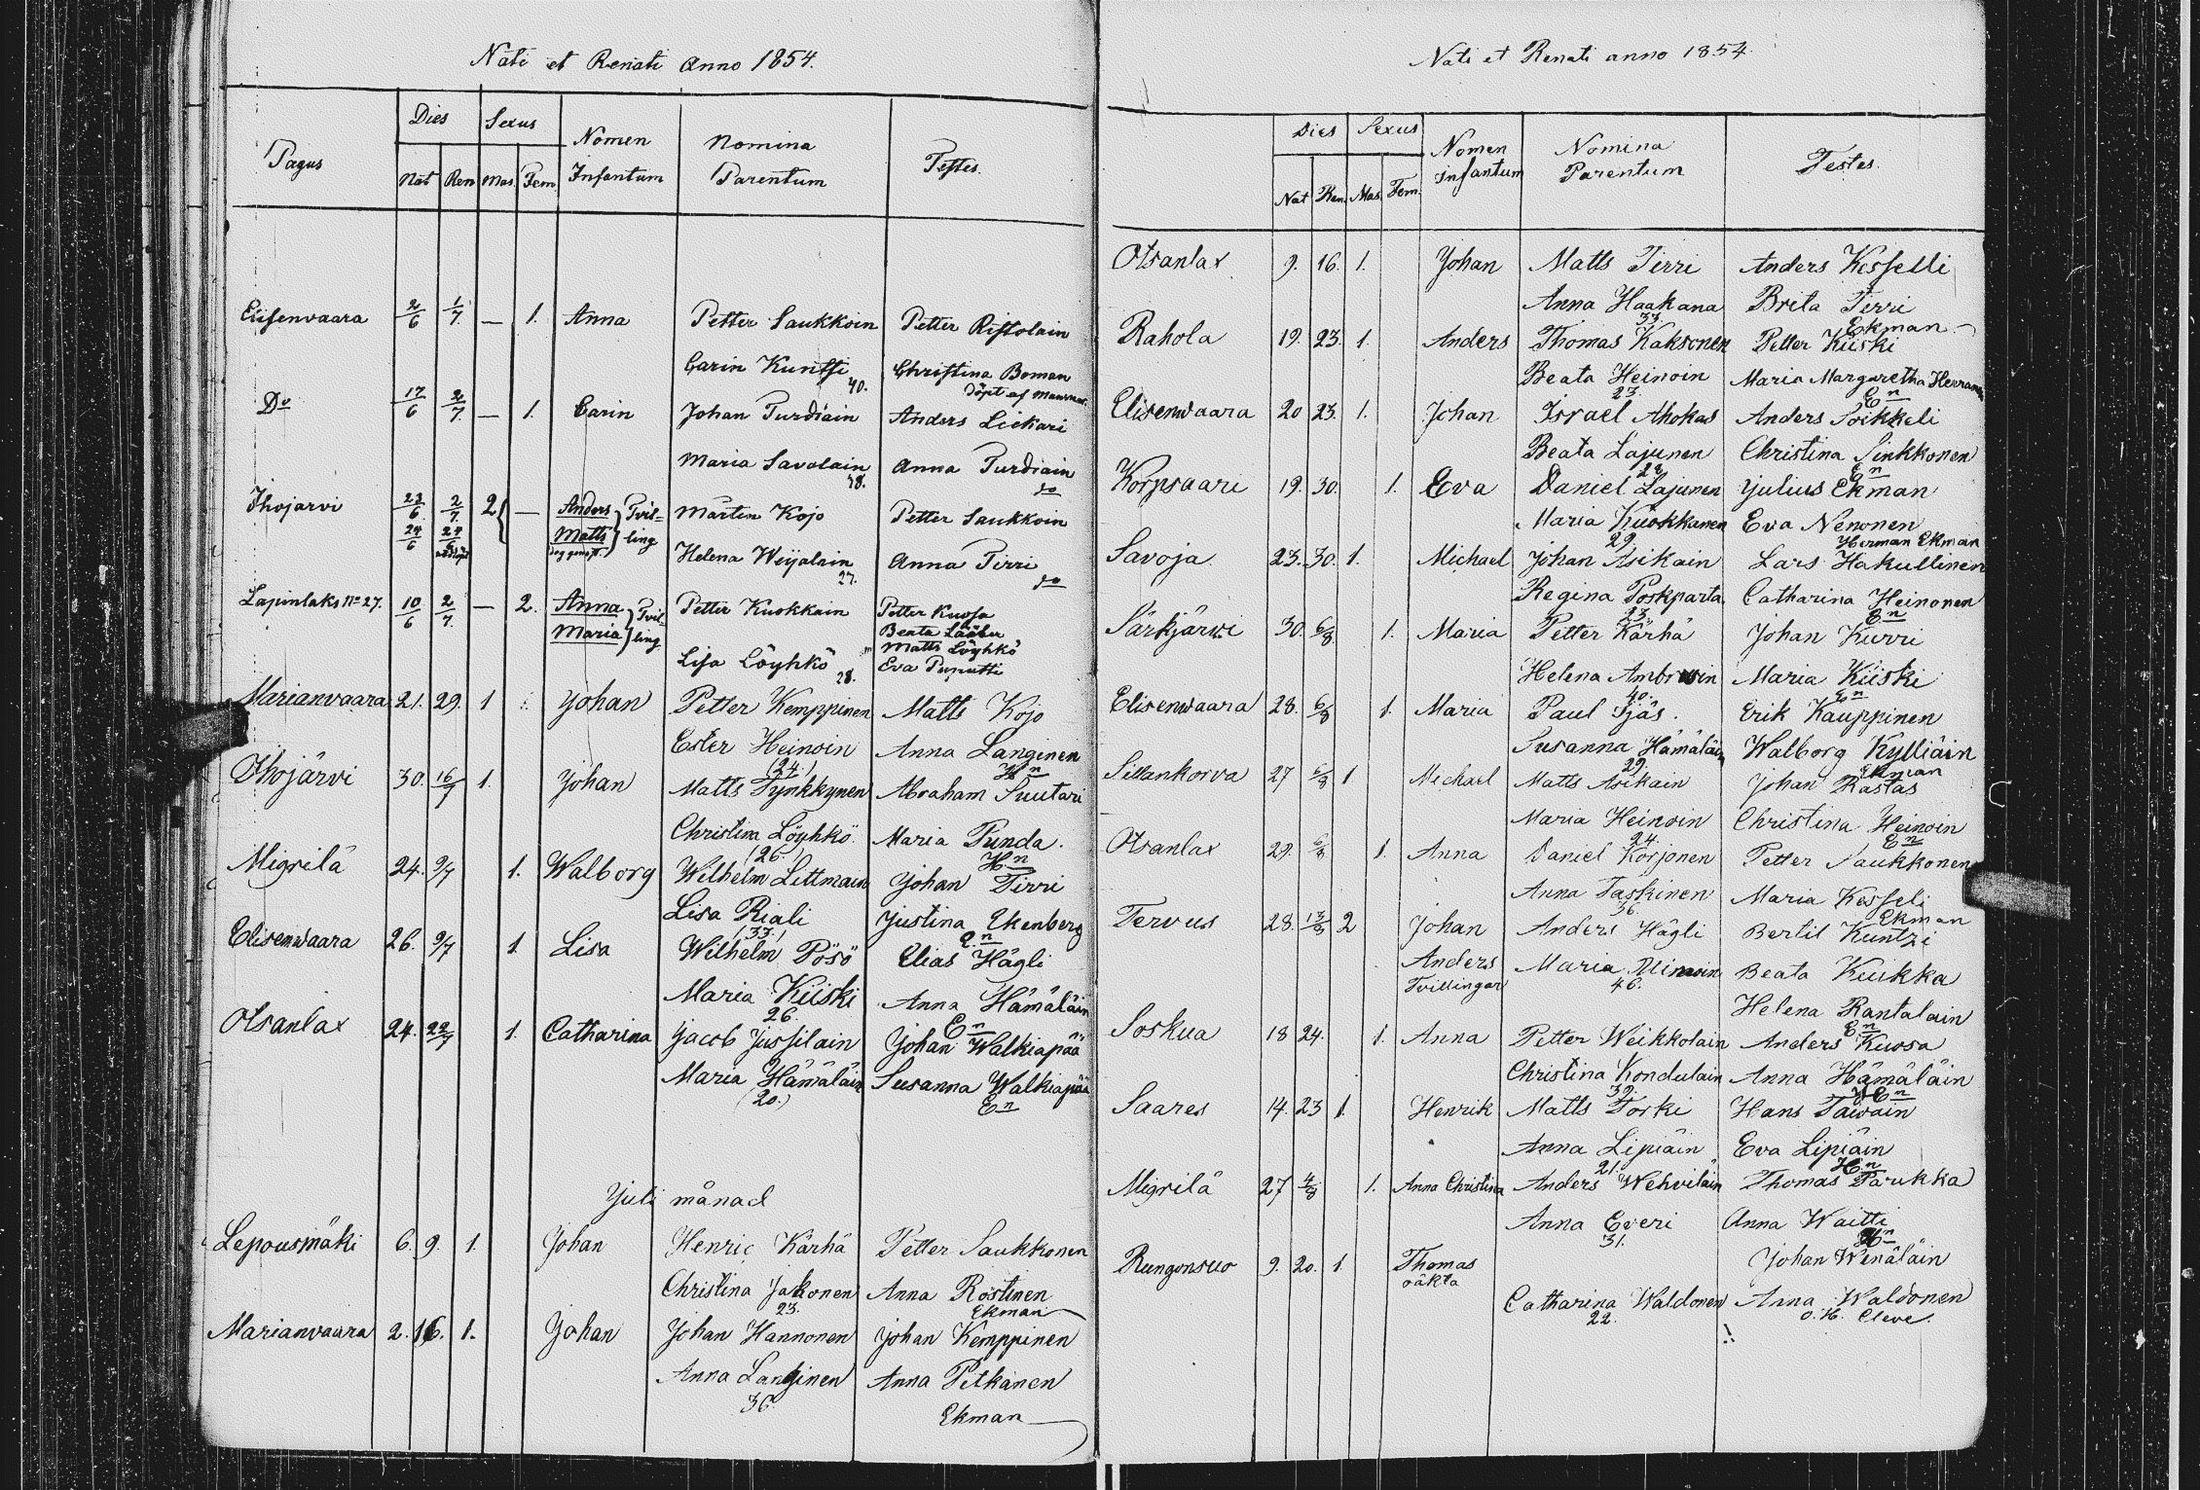 Nati et Renati Anno 1854.
Pagus Dies Sexus Nomen Infantum Nomina Parentum Testes.
Nat Ren Mas. Fem
Elisenvaara 2/6 1/7 — 1. Anna Petter Saukkoin Petter Ristolain
Carin Kuntsi 40. Christina Boman
Döpt af
Do 17/6 2/7 — 1. Carin Johan Turdiain Anders Liekari
Maria Savolain 38. Anna Turdiain
do
Ihojarvi 23/6 2/7 2 { — Anders } Tvil- Mårten Kojo Petter Saukkoin
24/6 24/6 Matts } ling
Helena Weijalain 27. Anna Tirri
do
Lapinlaks No 27. 10/6 2/7 — 2. Anna } Tvil- Petter Kuokkain Petter Kuosa
Maria } ling Beata Lääber
Matts Löyhkö
Lisa Löyhkö 28. Eva Puputti
Marianvaara 21. 29. 1 Johan Petter Kemppinen Matts Kojo
Ester Heinoin Anna Langinen
(24.) Hn
Ihojärvi 30. 16/7 1. Johan Matts Tynkkynen Abraham Suutari
Christina Löyhkö Maria Punda.
(26.) Hn
Migrilä 24. 9/7 1. Walborg Wilhelm Littmain Johan Tirri
Lisa Riali Justina Ekenberg
(33.) En
Elisenvaara 26. 9/7 1. Lisa Wilhelm Pösö Elias Hägli
Maria Kiiski Anna Hämäläin
26. En
Otsanlax 24. 22/7 1. Catharina Jacob Jussilain Johan Walkiapää
Maria Hämäläin Susanna Walkiapää
(20.) En
Juli månad
Lepousmäki 6. 9. 1. Johan Henric Kärhä Petter Saukkonen
Christina Jakonen Anna Rostinen
23. Ekman
Marianvaara 2. 16. 1. Johan Johan Hannonen Johan Kemppinen
Anna Langinen Anna Pitkänen
36. Ekman
Nati et Renati anno 1854.
Dies Sexus Nomen Infantum Nomina Parentum Testes.
Nat Ren. Mas. Fem.
Otsanlax 9. 16. 1. Johan Matts Tirri Anders Kesselli
Anna Haakana Brita Tirri
33. Ekman
Rahola 19. 23. 1. Anders Thomas Kaksonen Petter Kiiski
Beata Heinoin Maria Margaretha
23. En
Elisenwaara 20 23. 1. Johan Israel Ahokas Anders Soikkeli
Beata Lajunen Christina Sinkkonen
28 En
Korpsaari 19. 30. 1. Eva Daniel Lajunen Julius Ekman
Maria Kuokkanen Eva Nenonen
29 Herman Ekman
Savoja 23. 30. 1. Michael Johan Asikain Lars Hakullinen
Regina Poskparta Catharina Heinonen
23. En
Särkjärwi 30. 6/8 1. Maria Petter Kärhä Johan Kurri
Helena Ambrosin Maria Kiiski
40. En
Elisenwaara 28. 6/8 1. Maria Paul Tjäs. Erik Kauppinen
Susanna Hämäläin Walborg Kylliäin
29. Ekman
Sillankorva 27 6/8 1 Michael Matts Asikain Johan Rastas
Maria Heinoin Christina Heinoin
24. En
Otsanlax 29. 6/8 1. Anna Daniel Korjonen Petter Saukkonen
Anna Taskinen Maria Kesseli
36. Ekman
Tervus 28. 13/8 2 Johan Anders Hägli Bertil Kuntzi
Anders Maria Beata Kuikka
Tvillingar 46.
Helena Rantalain
En
Soskua 18 24. 1. Anna Petter Weikkolain Anders Kuosa
Christina Kondulain Anna Hämäläin
32.
Saares 14. 23 1. Henrik Matts Torki Hans Tawain
Anna Lipiäin Eva Lipiäin
21. Hn
Migrilä 27 4/8 1. Anna Christina Anders Wehviläin Thomas Parukka
Anna Everi Anna Waitti
31. Hn
Rungonsuo 9. 20. 1. Thomas Johan Wenäläin
oäkta
Catharina Waldonen Anna Waldonen
22. O. H. Cleve.